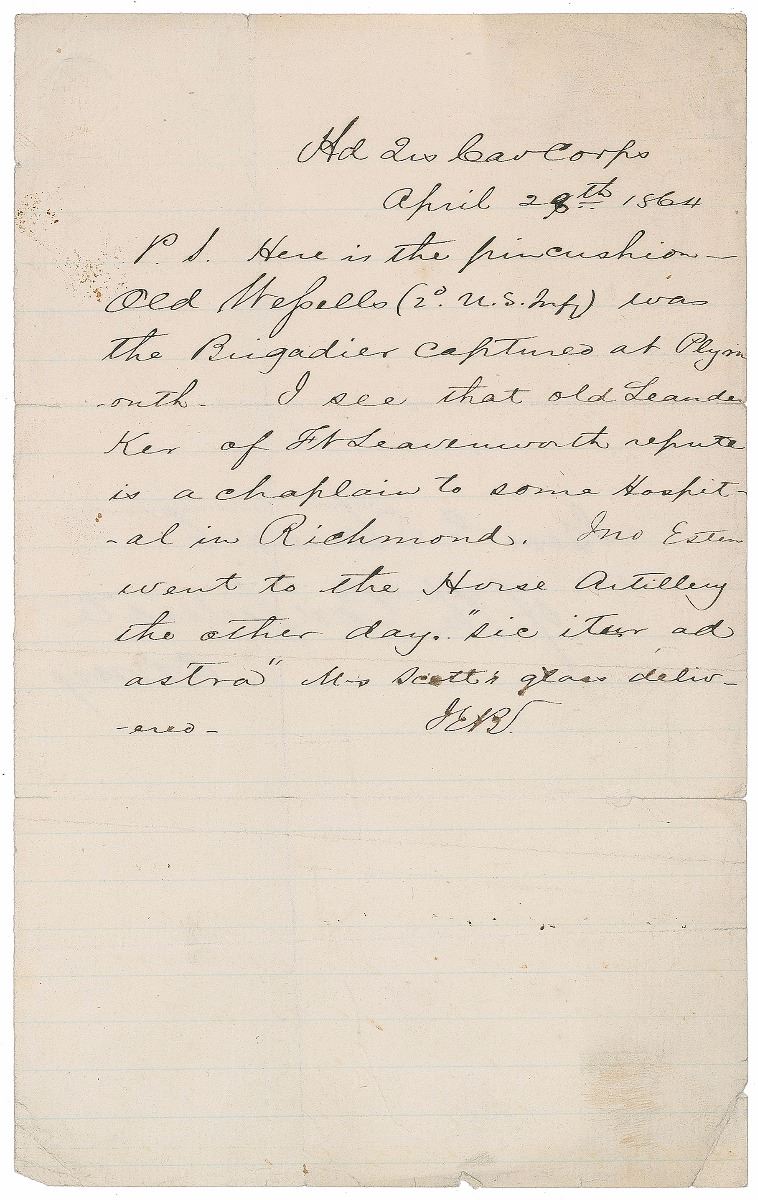 Hd Qrs Cav Corps
April 28th 1864
P. S. Here is the pincushion —
Old Wessells (2d. U.S. Infy) was
the Brigadier captured at Plym
-outh. I see that old Leander
Ker of Ft Leavenworth repute
is a chaplain to some Hospit-
-al in Richmond. Jno Esten
went to the Horse Artillery
the other day. "sic itur ad
astra" Mrs Scott's glass deliv-
-ered -
JEBS.